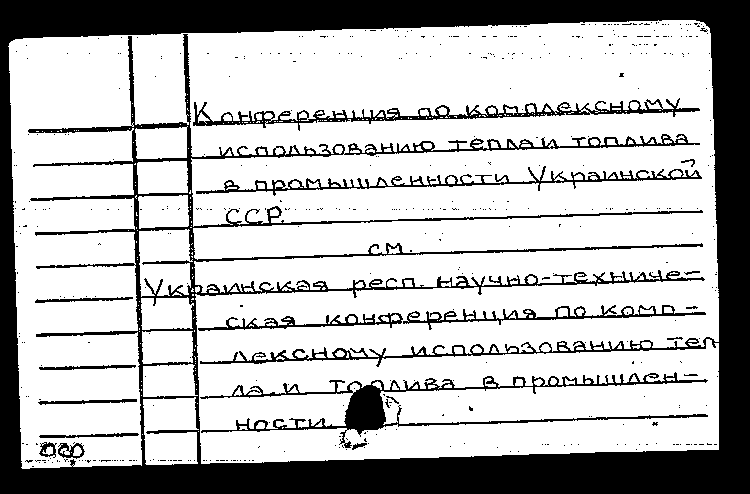 Конференция по комплексному
использованию тепла и топлива
в промышленности Украинской
ССР.
см.
Украинская респ. научно-техниче-
ская конференция по комп-
лексному использованию теп
ла и топлива в промышлен-
ности.